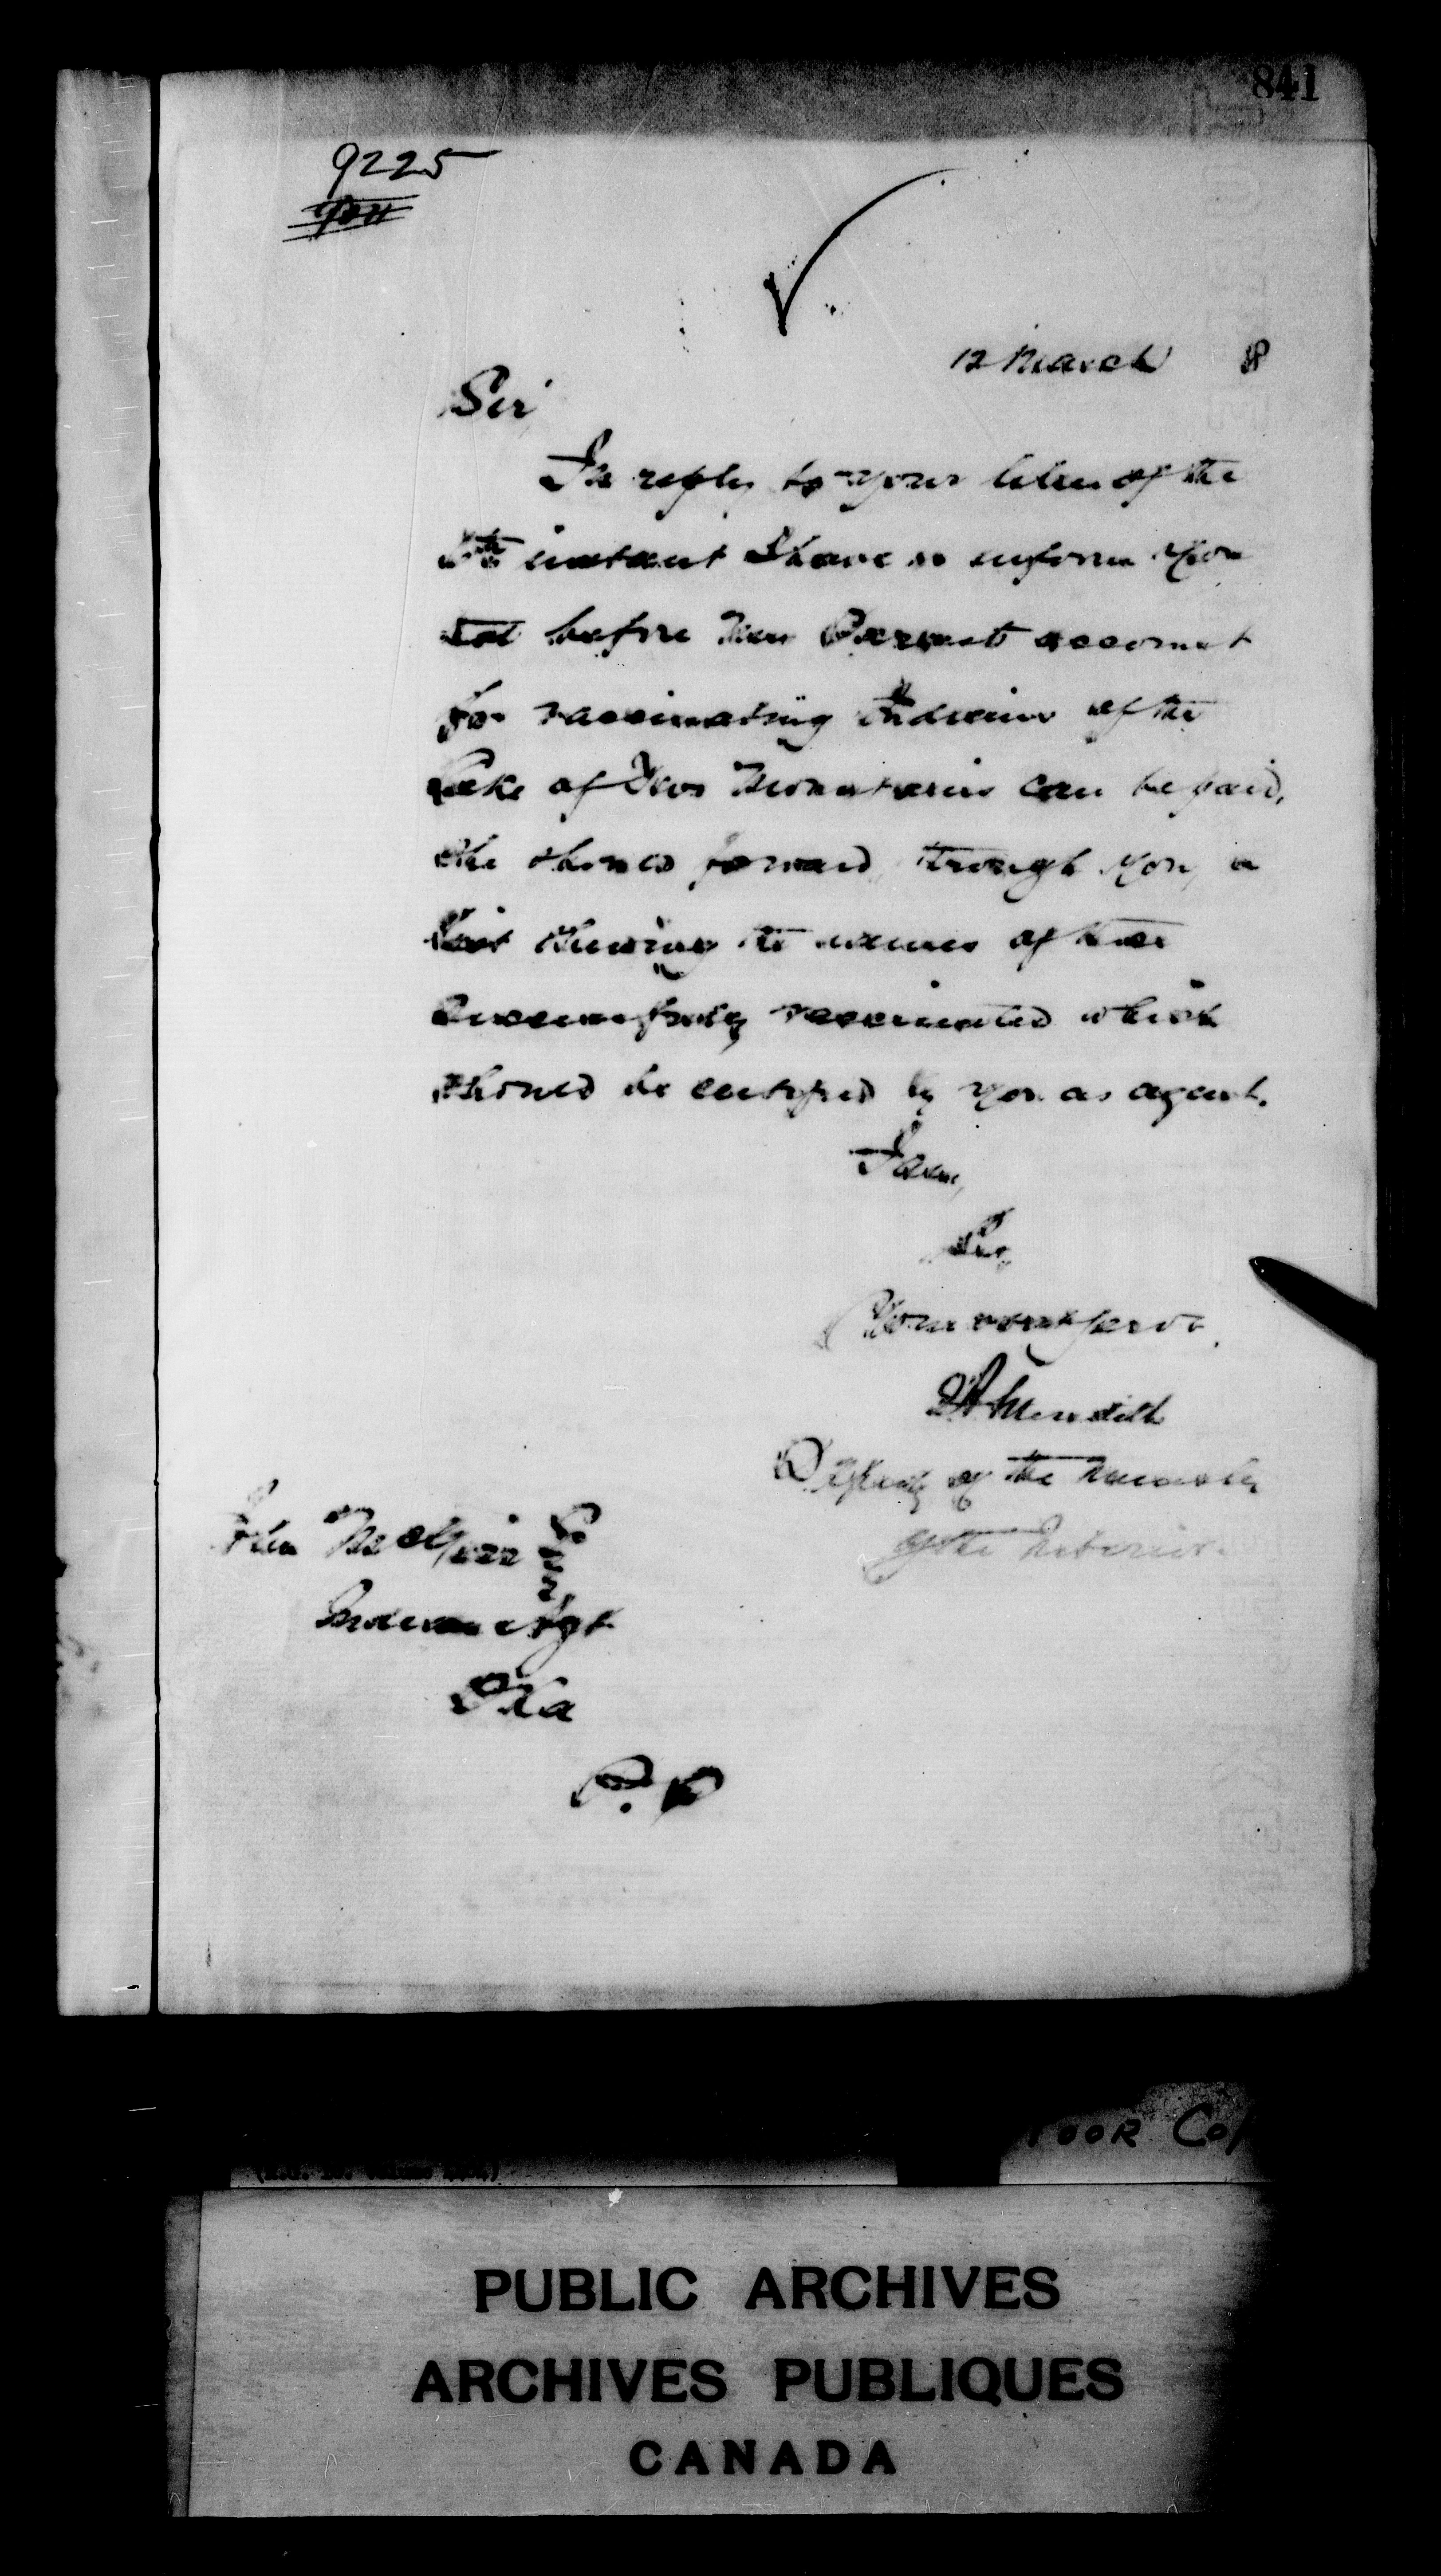 841
9225
12 March 8
Sir
In reply to your letter of the
instant I have to inform you
that before account
for vaccinating Indians of the
Lake of Two Mountains can be paid,
she should forward, through you, a
list shewing the names of those
vaccinated which
should be certified by you as agent.
I am,
Sir,
Your servt.
Meredith
Deputy of the Minister
of the Interior.
John
Indian Agt
Oka
P. Q
POOR COP
PUBLIC ARCHIVES
ARCHIVES PUBLIQUES
CANADA